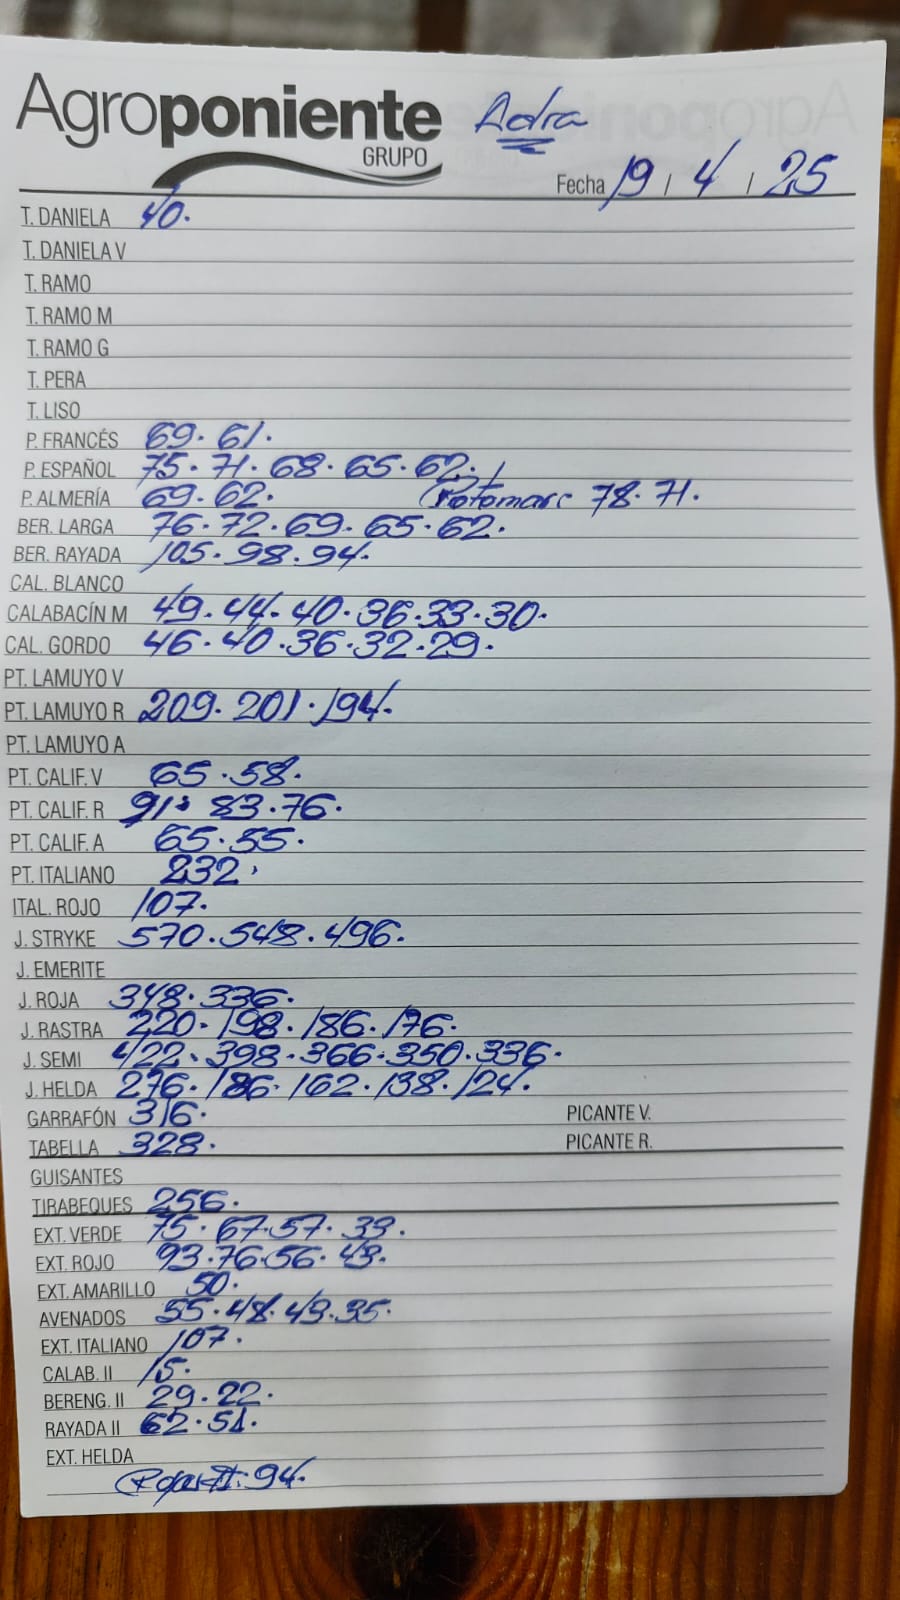 Agroponiente Adra
GRUPO
Fecha 19 / 4 / 25
T. DANIELA 40.
T. DANIELA V
T. RAMO
T. RAMO M
T. RAMO G
T. PERA
T. LISO
P. FRANCÉS 69. 61.
P. ESPAÑOL 75. 71. 68. 65. 62.
P. ALMERÍA 69. 62. 78. 71.
BER. LARGA 76. 72. 69. 65. 62.
BER. RAYADA 105. 98. 94.
CAL. BLANCO
CALABACÍN M 49. 44. 40. 36. 33. 30.
CAL. GORDO 46. 40. 36. 32. 29.
PT. LAMUYO V
PT. LAMUYO R 209. 201. 194.
PT. LAMUYO A
PT. CALIF. V 65. 58.
PT. CALIF. R 91. 83. 76.
PT. CALIF. A 65. 55.
PT. ITALIANO 232.
ITAL. ROJO 107.
J. STRYKE 570. 548. 496.
J. EMERITE
J. ROJA 348. 336.
J. RASTRA 220. 198. 186. 176.
J. SEMI 422. 398. 366. 350. 336.
J. HELDA 276. 186. 162. 138. 124.
GARRAFÓN 316. PICANTE V.
TABELLA 328. PICANTE R.
GUISANTES
TIRABEQUES 256.
EXT. VERDE 75. 67. 57. 39.
EXT. ROJO 93. 76. 56. 43.
EXT. AMARILLO 50.
AVENADOS 55. 48. 43. 35.
EXT. ITALIANO 107.
CALAB. II 15.
BERENG. II 29. 22.
RAYADA II 62. 51.
EXT. HELDA
94.